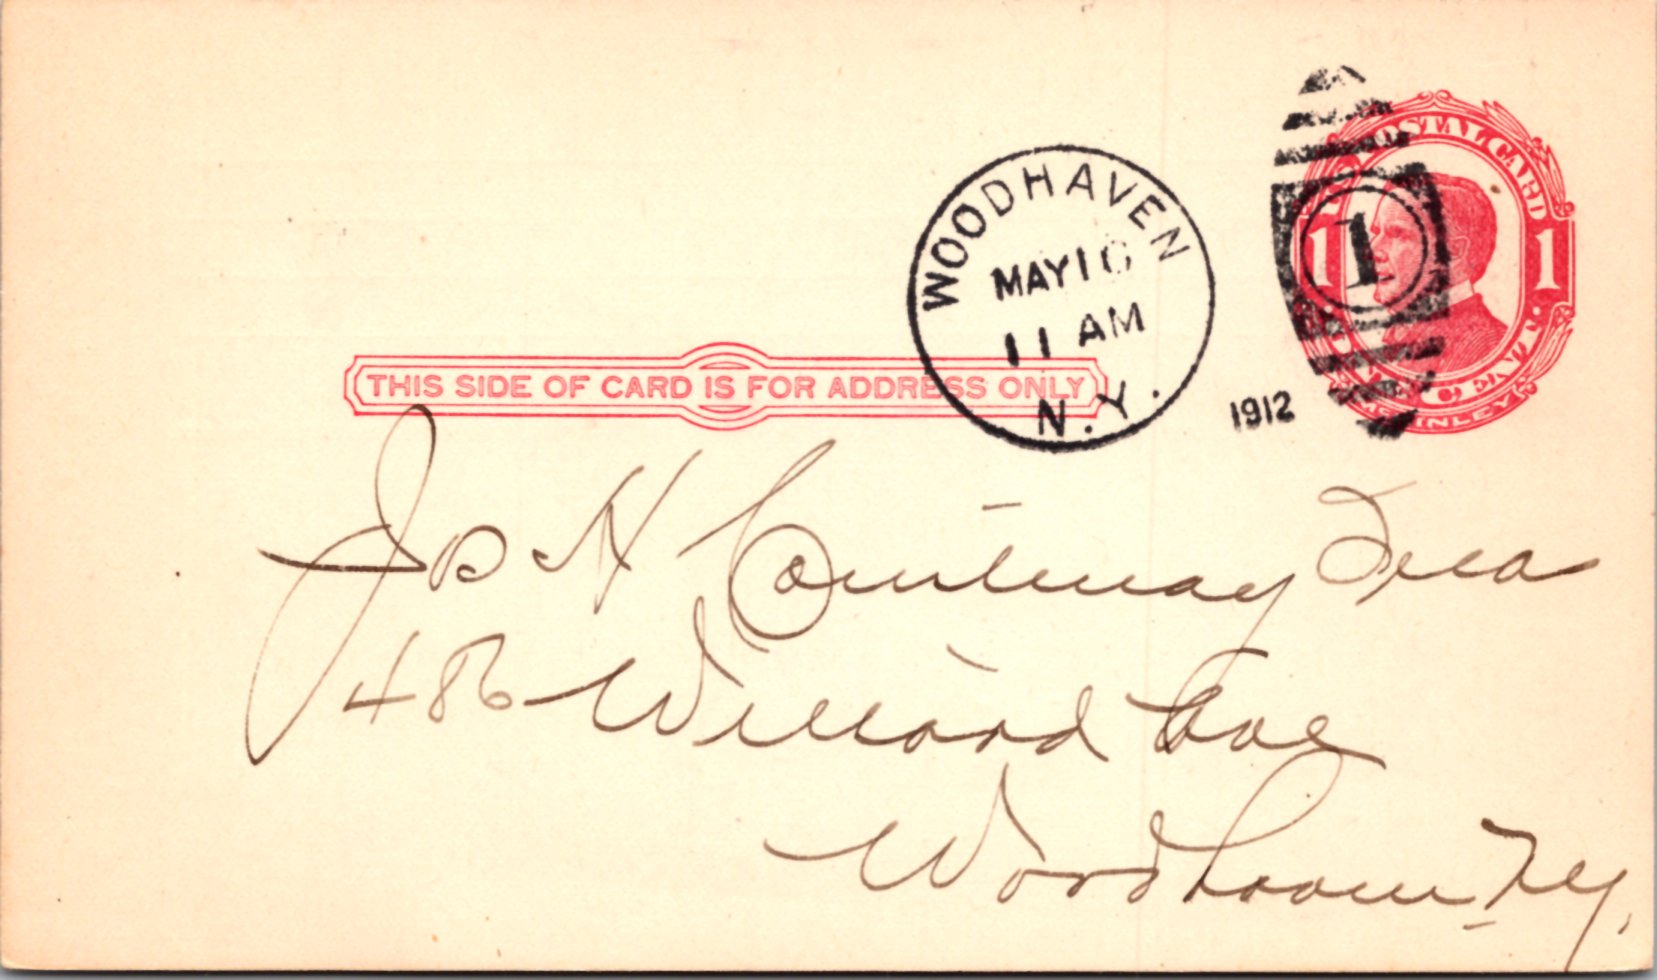 WOODHAVEN
MAY 16
11 AM
N.Y.
1912
1
POSTAL CARD
1 1
McKINLEY
THIS SIDE OF CARD IS FOR ADDRESS ONLY
Jos H Courtenay Trea
486 Willard Ave
Woodhaven N.Y.